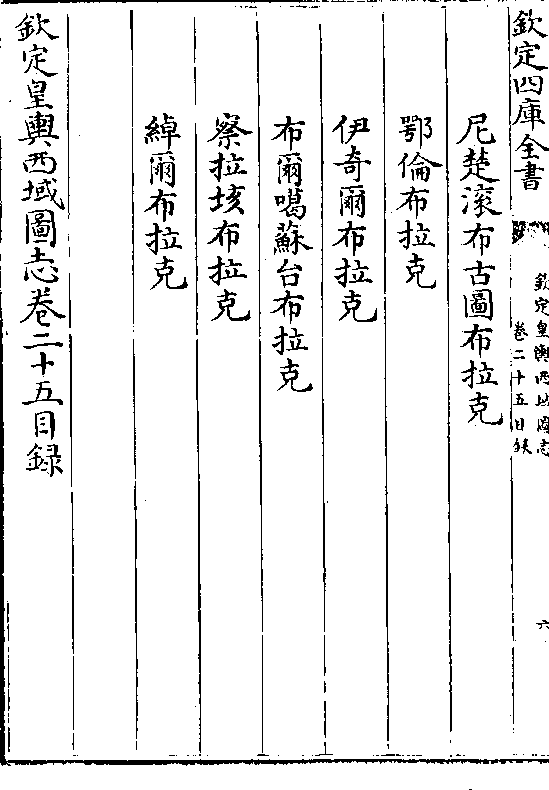 欽定四庫全書
欽定皇輿西域圖志
卷二十五目録
六
尼楚滚布古圖布拉克
鄂倫布拉克
伊奇爾布拉克
布爾噶蘇台布拉克
察拉垓布拉克
綽爾布拉克
欽定皇輿西域圖志卷二十五目録